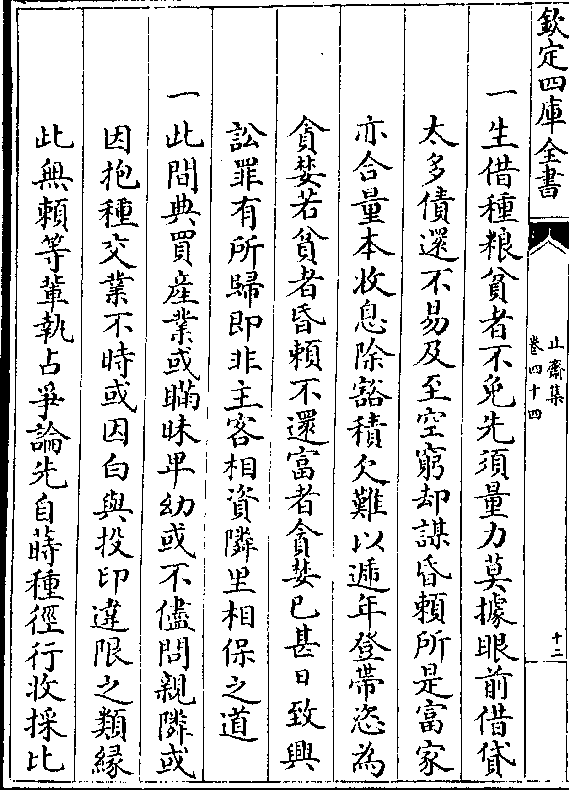 欽定四庫全書
止齋集
卷四十四
十二
一生借種粮貧者不免先須量力莫據眼前借貸
太多債還不易及至空窮却謀昏賴所是富家
亦合量本收息除豁積欠難以遞年登帶恣為
貪婪若貧者昏賴不還富者貪婪已甚日致興
訟罪有所歸即非主客相資隣里相保之道
一此間典買産業或瞞昧卑幼或不儘問親隣或
因抱種交業不時或因白與投印違限之類緣
此無賴等輩執占爭論先自蒔種徑行收採比